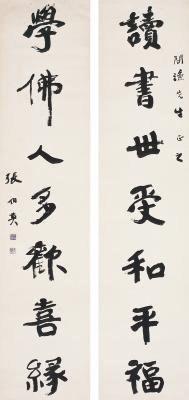 讀書世受和平福
閒遠先生正之
學佛人多歡喜緣
張伯英